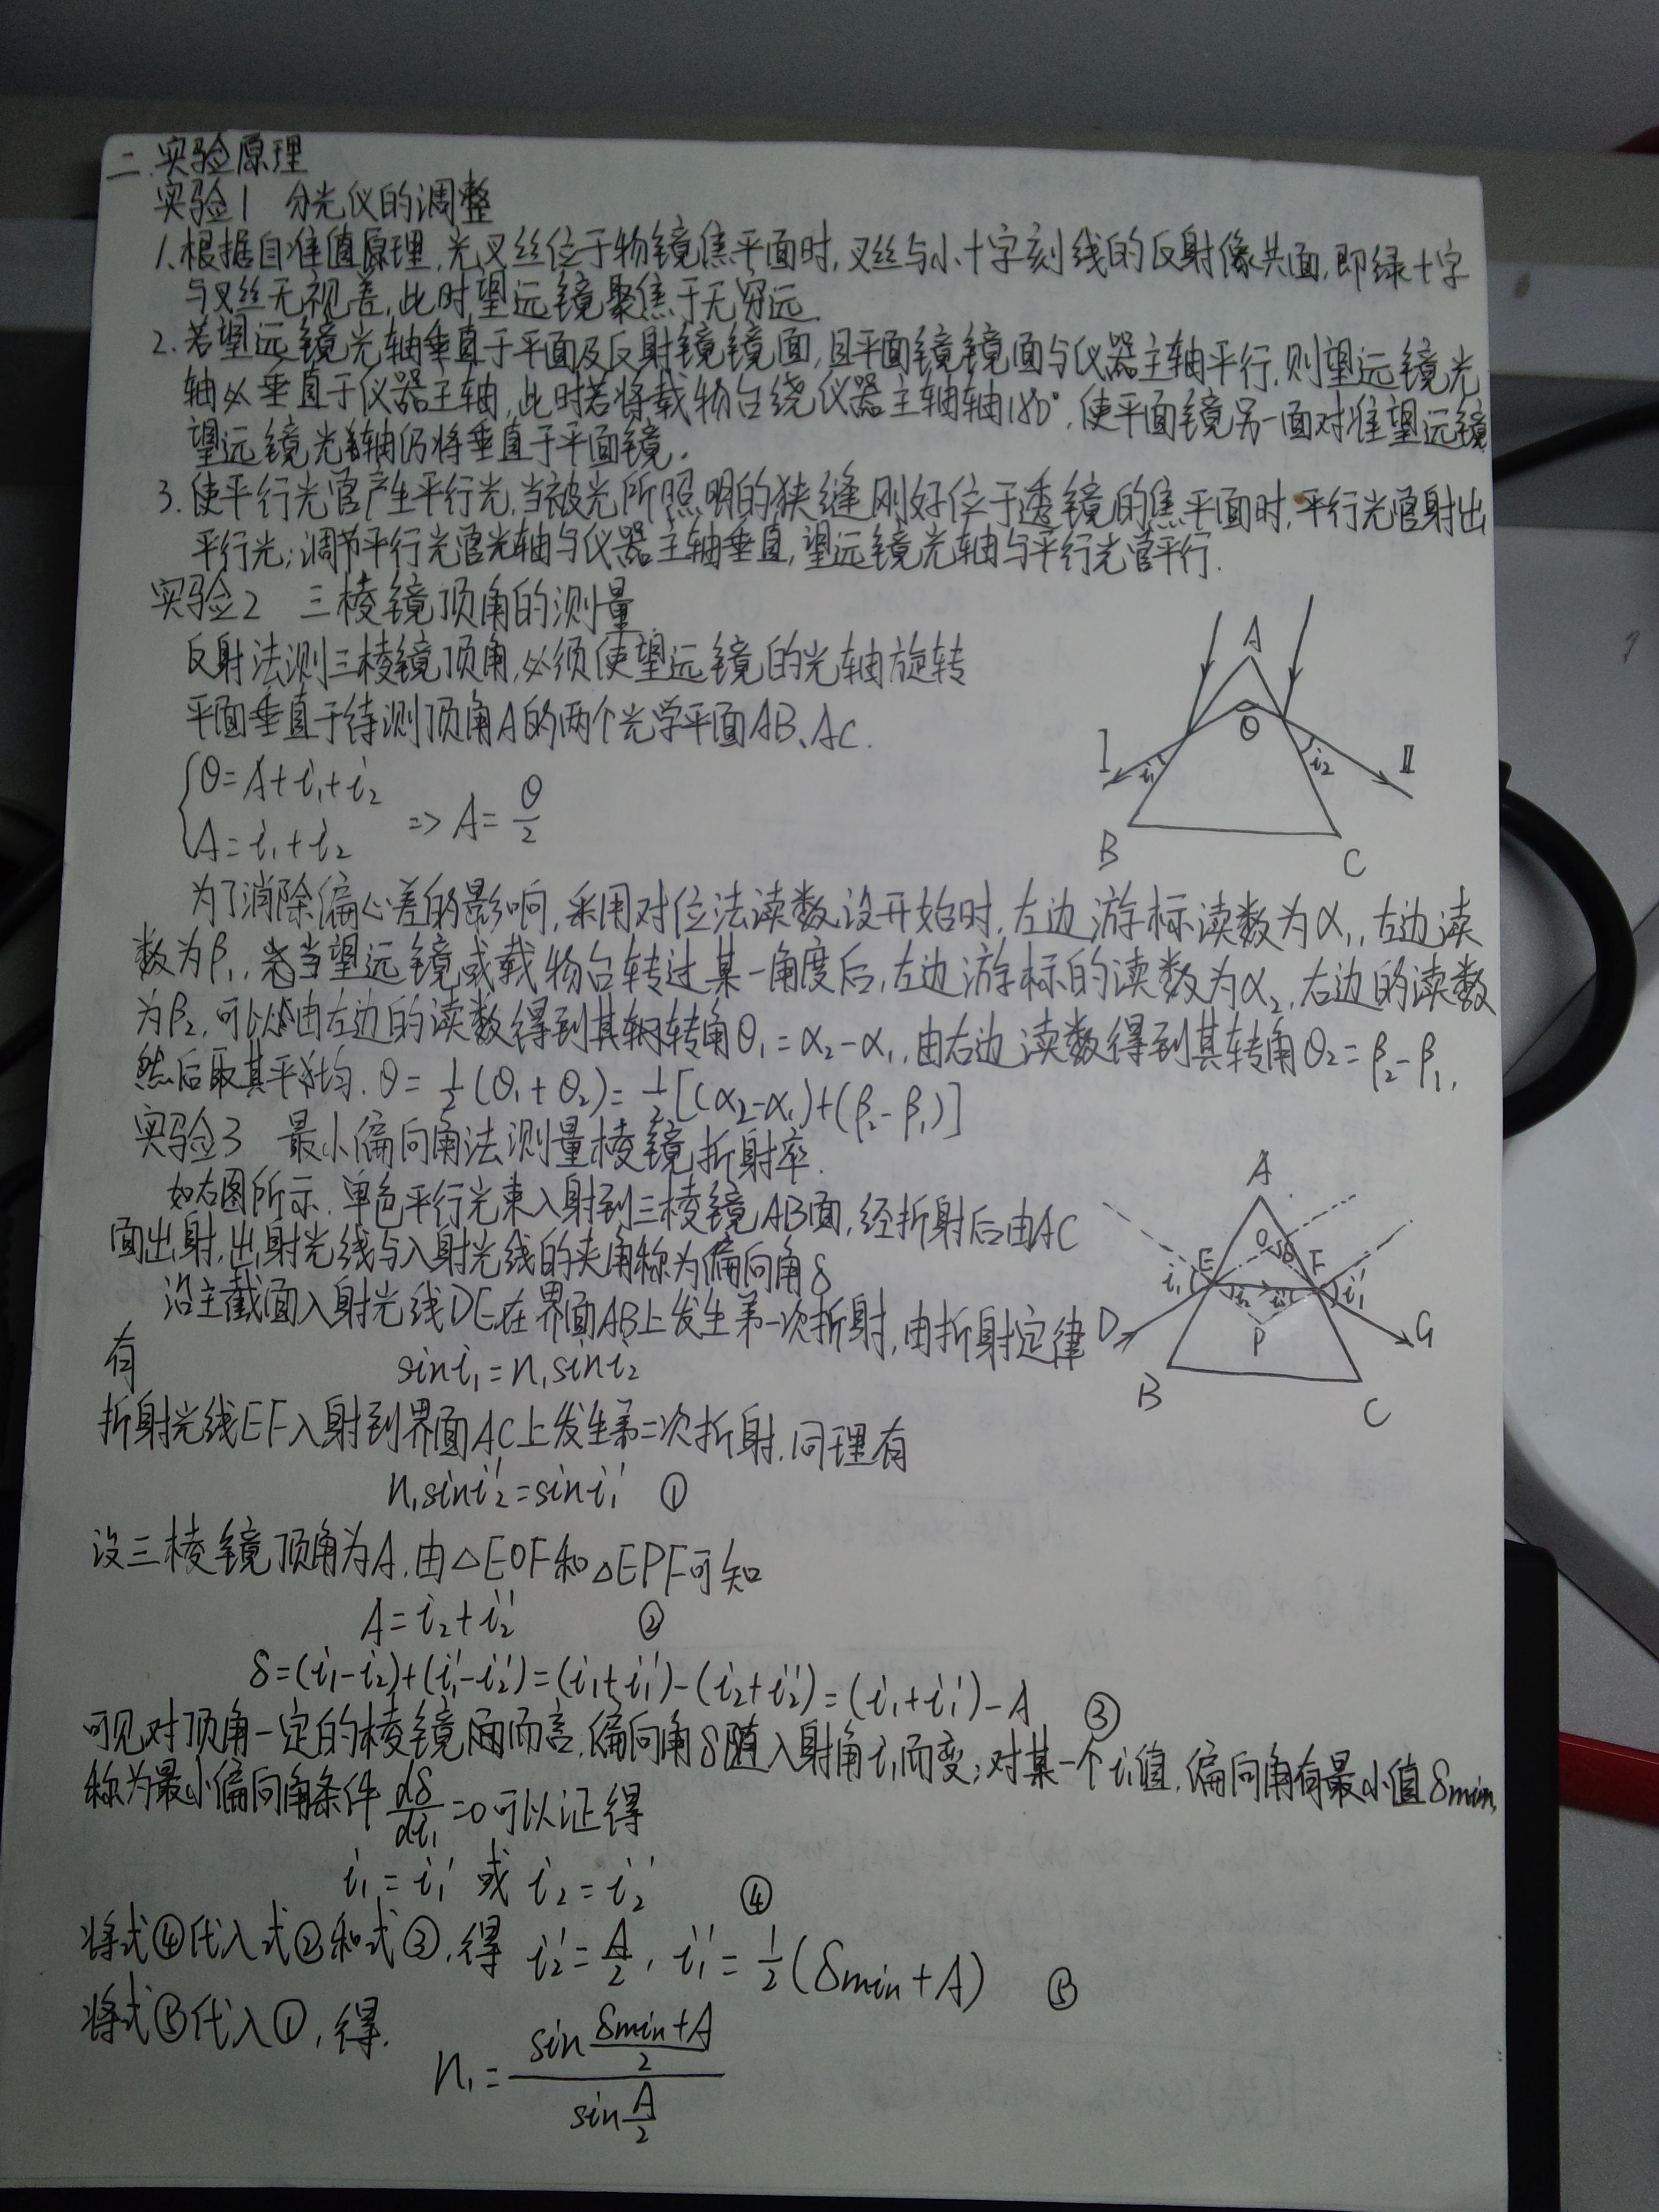 二.实验原理
实验1 分光仪的调整
1.根据自准值原理,光叉丝位于物镜焦平面时,叉丝与小十字刻线的反射像共面,即绿十字
与叉丝无视差,此时望远镜聚焦于无穷远.
2.若望远镜光轴垂直于平面及反射镜镜面,且平面镜镜面与仪器主轴平行,则望远镜光
轴必垂直于仪器主轴,此时若将载物台绕仪器主轴轴180°,使平面镜另一面对准望远镜
望远镜光轴仍将垂直于平面镜.
3.使平行光管产生平行光,当被光所照明的狭缝刚好位于透镜的焦平面时,平行光管射出
平行光;调节平行光管光轴与仪器主轴垂直,望远镜光轴与平行光管平行.
实验2 三棱镜顶角的测量
反射法测三棱镜顶角,必须使望远镜的光轴旋转
平面垂直于待测顶角A的两个光学平面AB、AC.
θ=A+i₁+i₂
A=i₁+i₂ => A=θ/2
A
θ
I i₁ i₂ II
B C
为了消除偏心差的影响,采用对位法读数设开始时,左边游标读数为α₁,左边读
数为β₁,当望远镜或载物台转过某一角度后,左边游标的读数为α₂,右边的读数
为β₂,可以由左边的读数得到其转角θ₁=α₂-α₁,由右边读数得到其转角θ₂=β₂-β₁,
然后取其平均.θ=1/2(θ₁+θ₂)=1/2[(α₂-α₁)+(β₂-β₁)]
实验3 最小偏向角法测量棱镜折射率.
如右图所示.单色平行光束入射到三棱镜AB面,经折射后由AC
面出射,出射光线与入射光线的夹角称为偏向角δ
沿主截面入射光线DE在界面AB上发生第一次折射,由折射定律
有
sini₁=n₁sini₂
A
O δ
E F
i₁ i₂ i₂' i₁'
D P G
B C
折射光线EF入射到界面AC上发生第二次折射.同理有
n₁sini₂'=sini₁' ①
设三棱镜顶角为A.由△EOF和△EPF可知
A=i₂+i₂' ②
δ=(i₁-i₂)+(i₁'-i₂')=(i₁+i₁')-(i₂+i₂')=(i₁+i₁')-A ③
可见对顶角一定的棱镜而言.偏向角δ随入射角i₁而变;对某一个i₁值.偏向角有最小值δmin,
称为最小偏向角条件dδ/di₁=0可以证得
i₁=i₁' 或 i₂=i₂' ④
将式④代入式②和式③,得 i₂'=A/2, i₁'=1/2(δmin+A) ⑤
将式⑤代入①,得.
n₁=sin((δmin+A)/2)/sin(A/2)